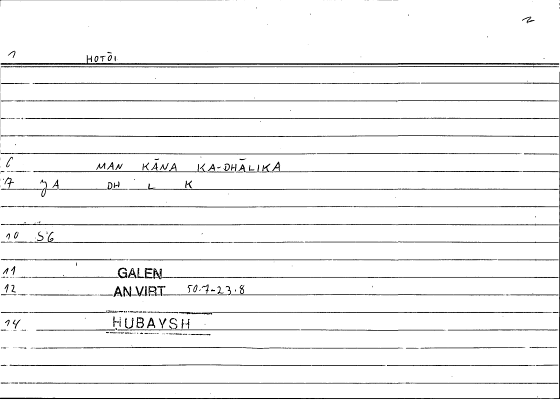 2
1 HOTŌI
6 MAN KĀNA KA-DHĀLIKA
7 JA DH L K
10 S6
11 GALEN
12 AN VIRT 50.7-23.8
14 HUBAYSH